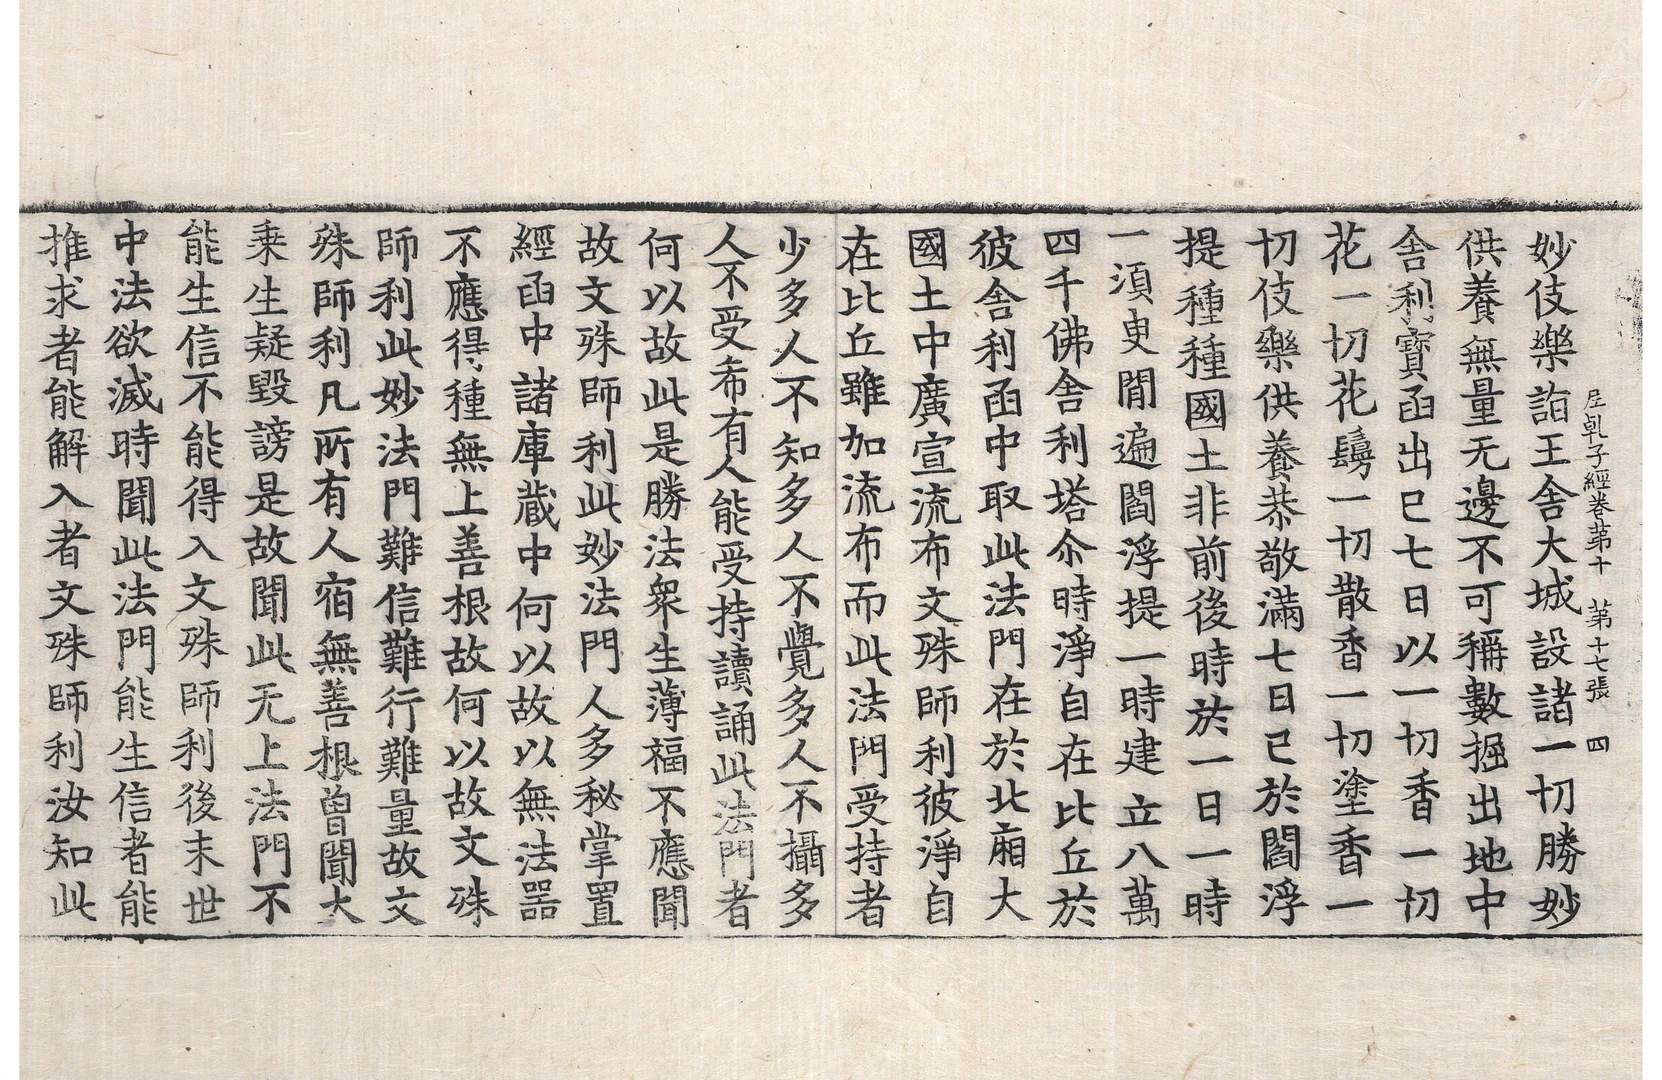 尼乹子經卷第十 第十七張 四
妙伎樂詣王舍大城設諸一切勝妙
供養無量无邊不可稱數掘出地中
舍利寶函出已七日以一切香一切
花一切花鬘一切散香一切塗香一
切伎樂供養恭敬滿七日已於閻浮
提種種國土非前後時於一日一時
一須臾閒遍閻浮提一時建立八萬
四千佛舍利塔尒時淨自在比丘於
彼舍利函中取此法門在於北廂大
國土中廣宣流布文殊師利彼淨自
在比丘雖加流布而此法門受持者
少多人不知多人不覺多人不攝多
人不受希有人能受持讀誦此法門者
何以故此是勝法衆生薄福不應聞
故文殊師利此妙法門人多秘掌置
經函中諸庫藏中何以故以無法器
不應得種無上善根故何以故文殊
師利此妙法門難信難行難量故文
殊師利凡所有人宿無善根曾聞大
乗生疑毀謗是故聞此无上法門不
能生信不能得入文殊師利後末世
中法欲滅時聞此法門能生信者能
推求者能解入者文殊師利汝知此